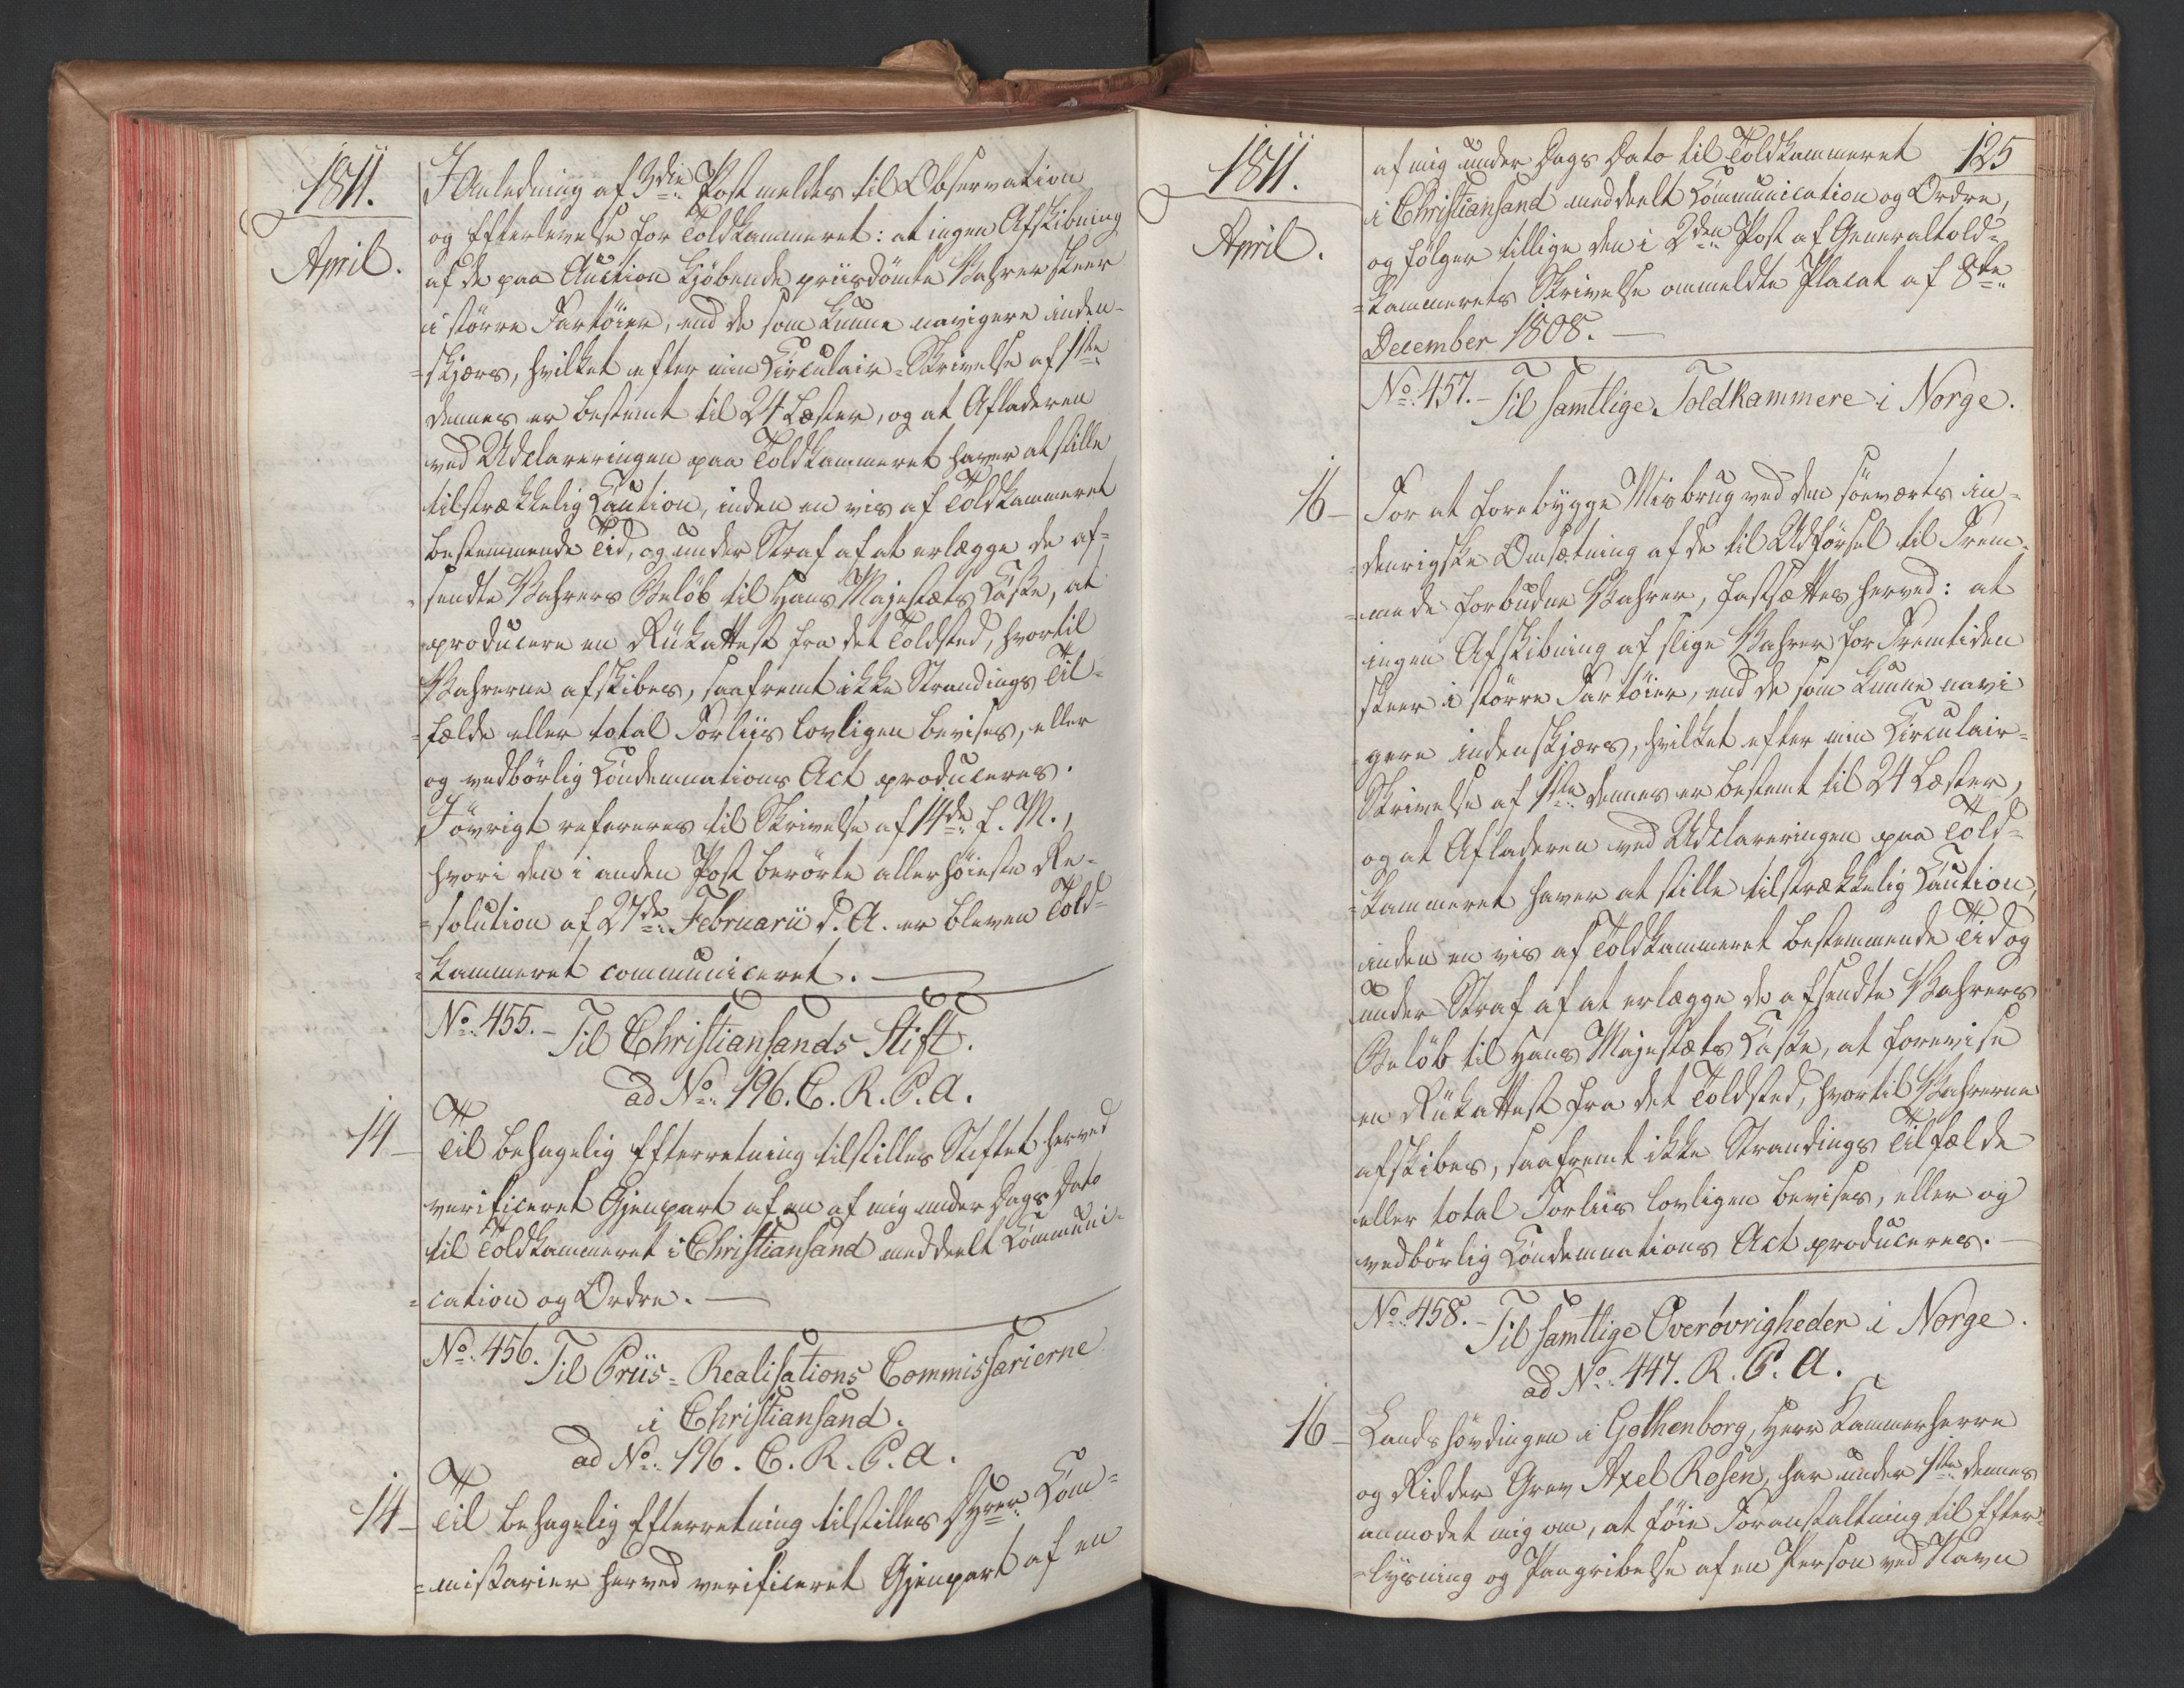 1811.
April.
I Anledning af 3die Post meldes til Observation
og Efterlevelse for Toldkammeret: at ingen Afskibning
af de paa Auction kjøbende priisdömte Vahrer skeer
i större Fartöier, end de som kunne navigere inden-
=skjærs, hvilket efter min Circulair-Skrivelse af 1ste
dennes er bestemt til 24 Læster, og at Afladeren
ved Udclareringen paa Toldkammeret haver at stille
tilstrækkelig Caution, inden en vis af Toldkammeret
bestemmende Tid, og under Straf af at erlægge de af=
=sendte Vahrers Belöb til Hans Majestæts Casse, at
producere en Rükattest fra det Toldsted, hvortil
Vahrerne afskibes, saafremt ikke Strandings Til=
=fælde eller total Forliis lovligen bevises, eller
og vedbörlig Condemnations Act produceres.
I övrigt refereres til Skrivelse af 14de f. M.,
hvori den i anden Post berörte allerhöieste Re=
=solution af 27de Februarii d. A. er bleven Told=
=kammeret communiceret. —
No. 455. – Til Christiansands Stift.
ad No. 196. C. R. P. A.
14 – Til behagelig Efterretning tilstilles Stiftet herved
verificeret Gjenpart af en af mig under Dags Dato
til Toldkammeret i Christiansand meddeelt Communi=
=cation og Ordre. —
No. 456. Til Priis=Realisations Commissarierne
i Christiansand.
ad No. 196. C. R. P. A.
14 – Til behagelig Efterretning tilstilles DHrer Com=
=missarier herved verificeret Gjenpart af en
1811.
April.
125
af mig under Dags Dato til Toldkammeret
i Christiansand meddeelt Communication og Ordre,
og fölger tillige den i 2den Post af Generaltold=
=kammerets Skrivelse ommeldte Placat af 8de
December 1808. —
No. 457. – Til samtlige Toldkammere i Norge.
16 – For at forebygge Misbrug ved den söeværts in=
=denrigske Omsætning af de til Udförsel til Frem=
=mede forbudne Vahrer, fastsættes herved: at
ingen Afskibning af slige Vahrer for Fremtiden
skeer i större Fartöier, end de som kunne navi
=gere indenskjærs, hvilket efter min Circulair=
Skrivelse af 1ste dennes er bestemt til 24 Læster,
og at Afladeren ved Udclareringen paa Told=
=kammeret haver at stille tilstrækkelig Caution,
inden en vis af Toldkammeret bestemmende Tid og
under Straf af at erlægge de afsendte Vahrers
Belöb til Hans Majestæts Casse, at forevise
en Rükattest fra det Toldsted, hvortil Vahrerne
afskibes, saafremt ikke Strandings Tilfælde
eller total Forliis lovligen bevises, eller og
vedbörlig Condemnations Act produceres. —
No. 458. – Til samtlige Överövrigheder i Norge.
ad No. 447. R. P. A.
16 – Landshövdingen i Gothenborg, Herr Kammerherre
og Ridder Grev Axel Rosen, har under 1ste dennes
anmodet mig om, at föie Foranstaltning til Efter=
=lysning og Paagribelse af en Person ved Navn